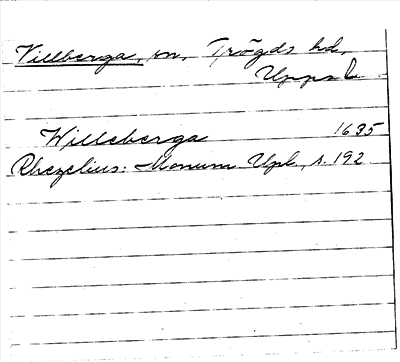 Villberga, sn, Trögds hd,
Upps. l.
Willeberga 1635
Rhezelius: Monum. Upl., s. 192